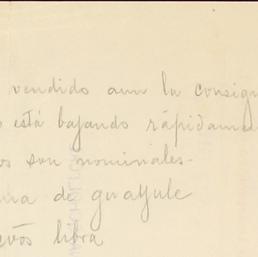 vendido aun la consig
está bajando rápidame
os son nominales.
de guayule
libra